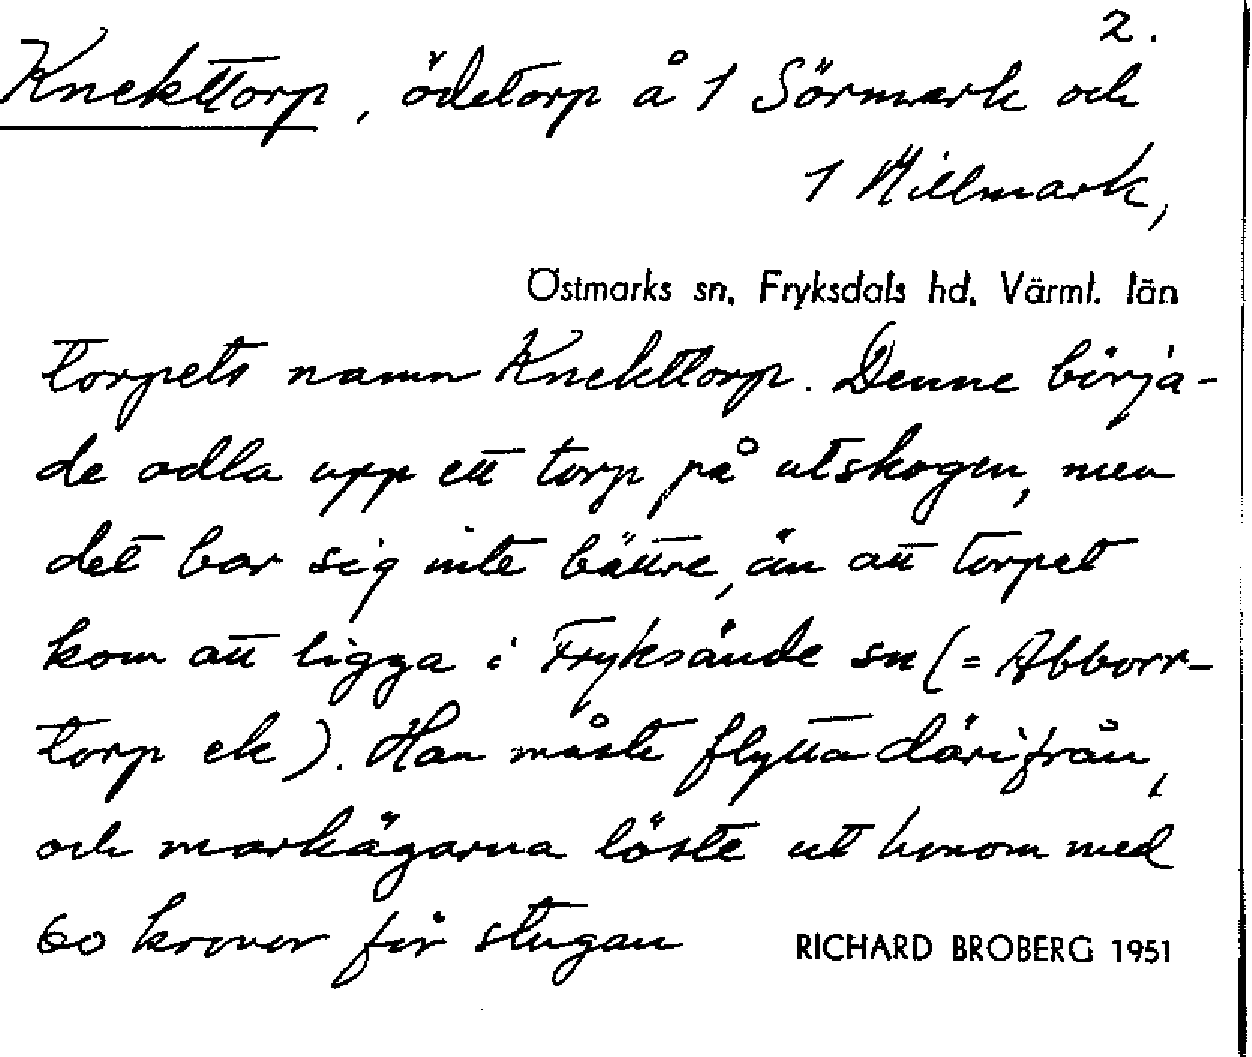 2.
Knekttorp, ödetorp å 1 Sörmark och
1 Millmark,
Östmarks sn, Fryksdals hd, Värml. län
torpets namn Knekttorp. Denne börja-
de odla upp ett torp på utskogen, men
det bar sig inte bättre, än att torpet
kom att ligga i Fryksände sn (= Abborr-
torp ek). Han måste flytta därifrån,
och markägarna löste ut honom med
60 kronor för stugan
RICHARD BROBERG 1951